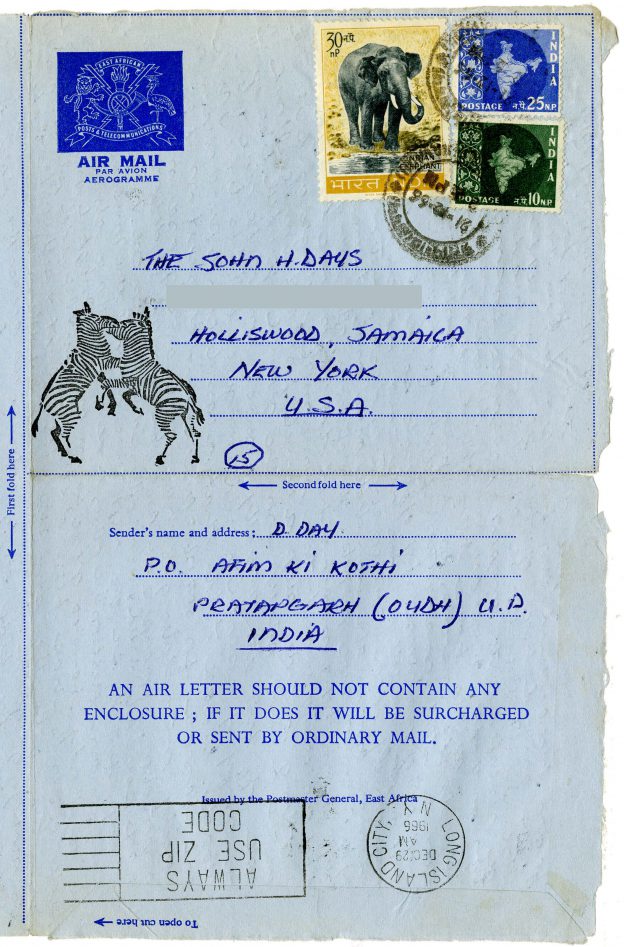 EAST AFRICAN
POSTS & TELECOMMUNICATIONS
AIR MAIL
PAR AVION
AEROGRAMME
30 न.पै.
nP
INDIAN
ELEPHANT
भारत
INDIA
POSTAGE न.पै. 25 N.P.
INDIA
POSTAGE न.पै. 10 N.P.
THE JOHN H. DAYS
HOLLISWOOD, JAMAICA
NEW YORK
U.S.A.
15
First fold here
Second fold here
Sender's name and address: D. DAY
P.O. AFIM KI KOTHI
PRATAPGARH (OUDH) U.P.
INDIA
AN AIR LETTER SHOULD NOT CONTAIN ANY
ENCLOSURE ; IF IT DOES IT WILL BE SURCHARGED
OR SENT BY ORDINARY MAIL.
Issued by the Postmaster General, East Africa
ALWAYS
USE ZIP
CODE
LONG ISLAND CITY, N.Y.
DEC 29
AM
1966
To open cut here